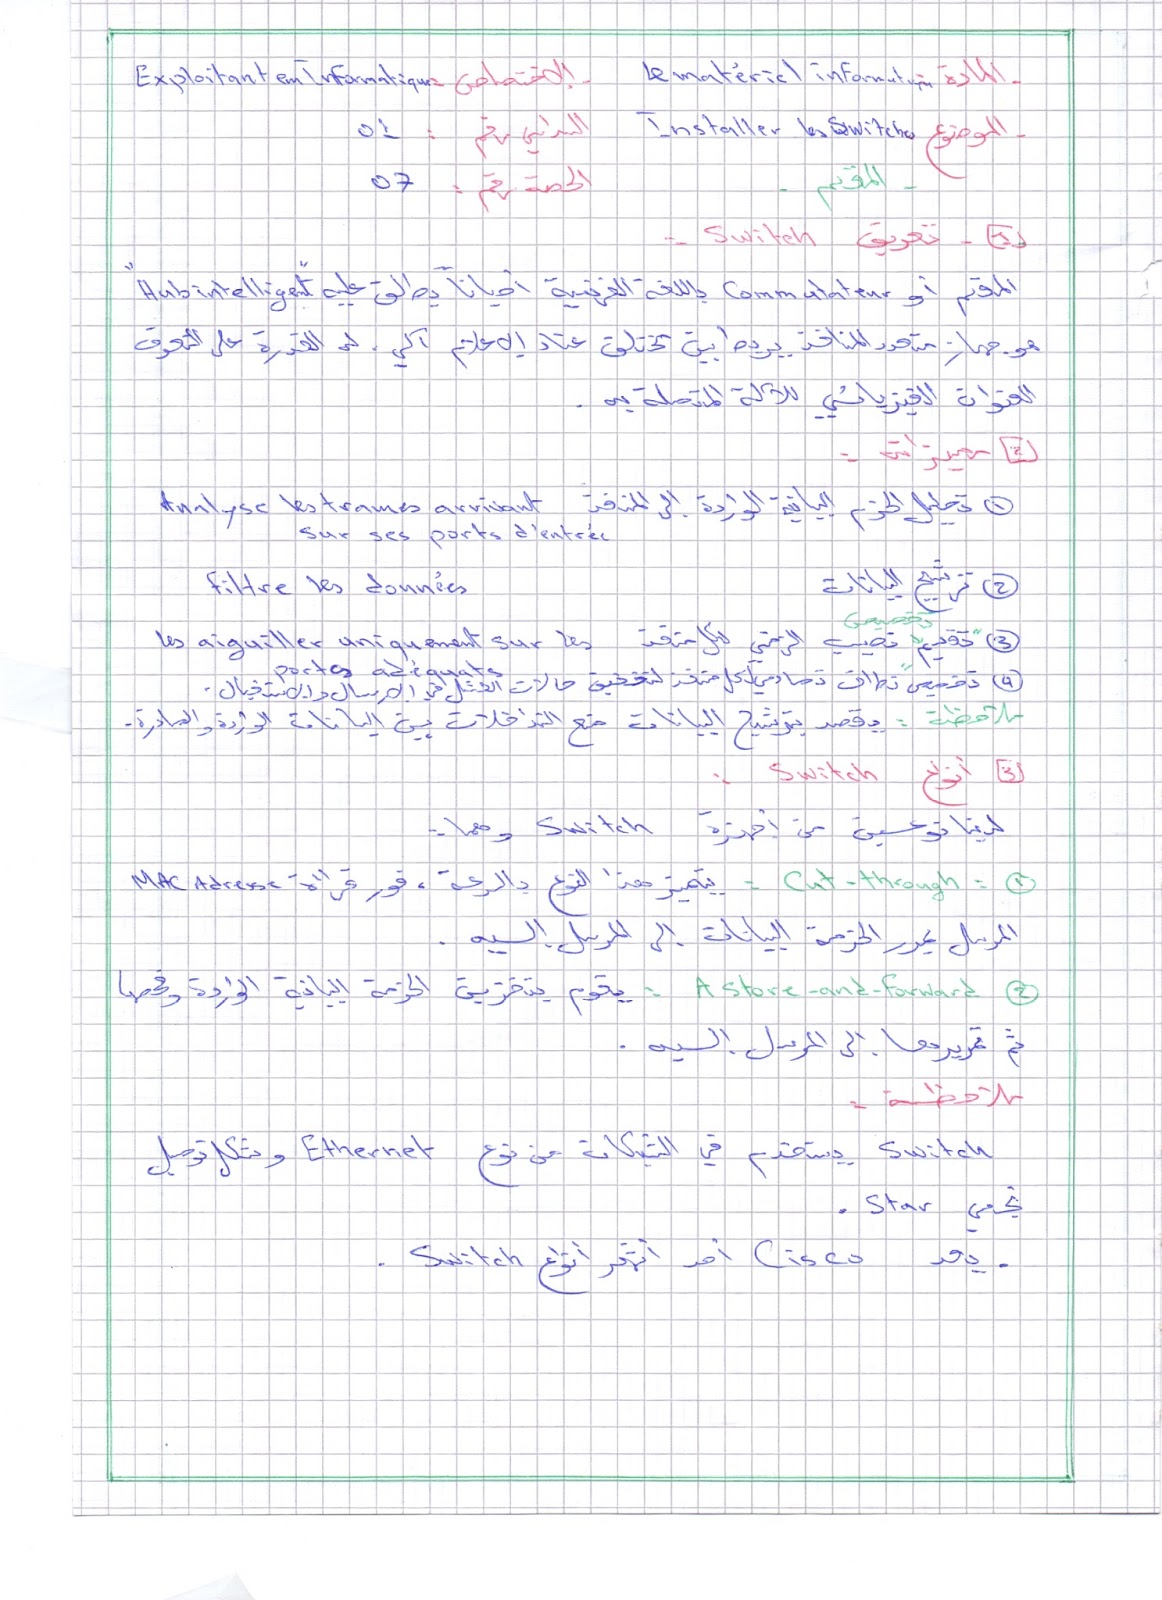 - المادة Le matériel informatique - الإختصاص = Exploitant en Informatique
- الموضوع Installer les Switchs السداسي رقم : 01
- المقسم - الحصة رقم : 07
1 - تعريف Switch =
المقسم أو Commutateur باللغة الفرنسية أحياناً يطلق عليه "Hub intelligent"
هو جهاز متعدد المنافذ يربط بين مختلف عتاد الإعلام آلي، له القدرة على التعرف
العنوان الفيزيائي للآلة المتصلة به.
2 مميزات =
1 تحليل الحزم البيانية الواردة إلى المنفذ Analyse les trames arrivant
sur ses ports d'entrée
2 ترشيح البيانات filtre les données
تخصيص
3 "تقسيم" نصيب الزمني لكل منفذ les aiguiller uniquement sur les
portes adéquats
4 تخصيص نطاق تصادمي لكل منفذ لتخفيض حالات الفشل في الإرسال والاستقبال.
ملاحظة = يقصد بترشيح البيانات منع التداخلات بين البيانات الواردة والصادرة.
3 أنواع Switch :
لدينا نوعين من أجهزة Switch وهما =
1 = Cut-through = يتميز هذا النوع بالسرعة، فور قراءة MAC Adresse
المرسل يمرر الحزمة البيانات إلى المرسل إليه.
2 A Store-and-forward = يقوم بتخزين الحزمة البيانية الواردة وفحصها
ثم تمريرها إلى المرسل إليه.
ملاحظة =
Switch يستخدم في الشبكات من نوع Ethernet وشكل توصيل
نجمي Star.
. يعد Cisco أحد أشهر أنواع Switch.